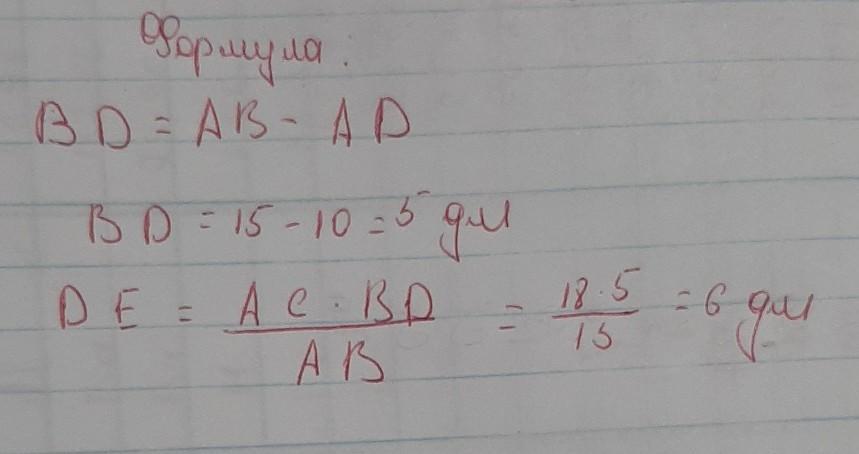 Формула:
BD = AB - AD
BD = 15 - 10 = 5 дм
DE = AC · BD / AB = 18·5 / 15 = 6 дм